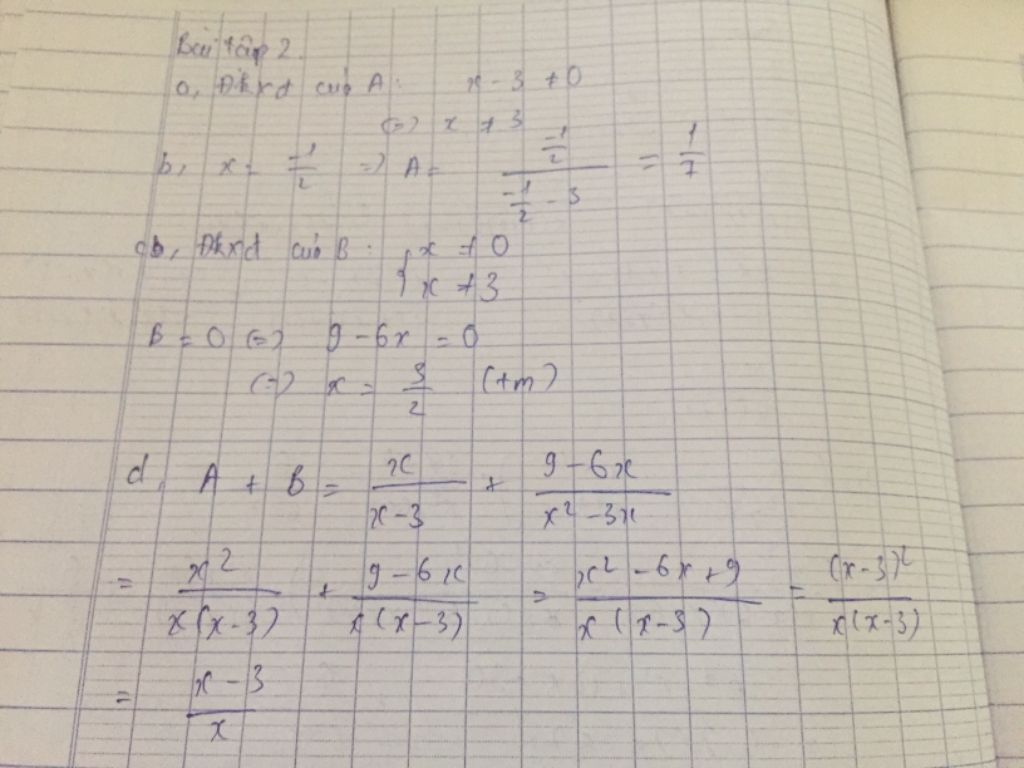 Bài tập 2.
a, Đkxđ của A: x - 3 ≠ 0
(=) x ≠ 3
b, x = -1/2 =) A = (-1/2)/(-1/2 - 3) = 1/7
cb, Đkxđ của B: { x ≠ 0
x ≠ 3
B = 0 (=) 9 - 6x = 0
(=) x = 3/2 (tm)
d, A + B = x/(x - 3) + (9 - 6x)/(x² - 3x)
= x²/(x(x - 3)) + (9 - 6x)/(x(x - 3)) = (x² - 6x + 9)/(x(x - 3)) = (x - 3)²/(x(x - 3))
= (x - 3)/x